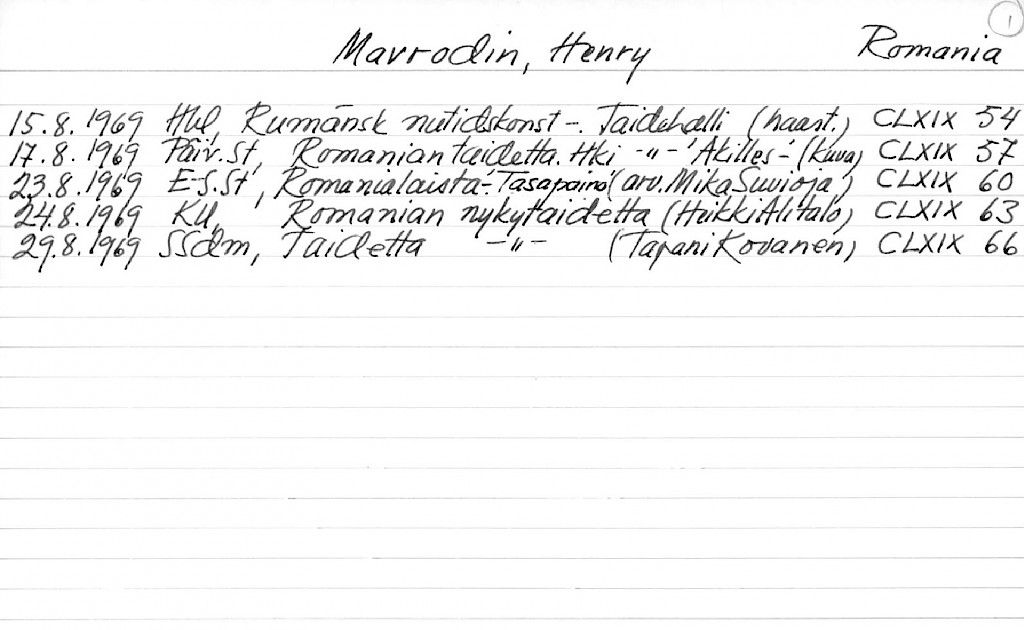 1
Mavrodin, Henry Romania
15.8.1969 Hbl, Rumänsk nutidskonst -. Taidehalli (haast.) CLXIX 54
17.8.1969 Päiv.St, Romanian taidetta. Hki -"- 'Akilles-' (kuva) CLXIX 57
23.8.1969 E-S.St, Romanialaista-'Tasapaino' (arv. Mika Suvioja) CLXIX 60
24.8.1969 KU, Romanian nykytaidetta (Heikki Alitalo) CLXIX 63
29.8.1969 SSdm, Taidetta -"- (Tapani Kovanen) CLXIX 66